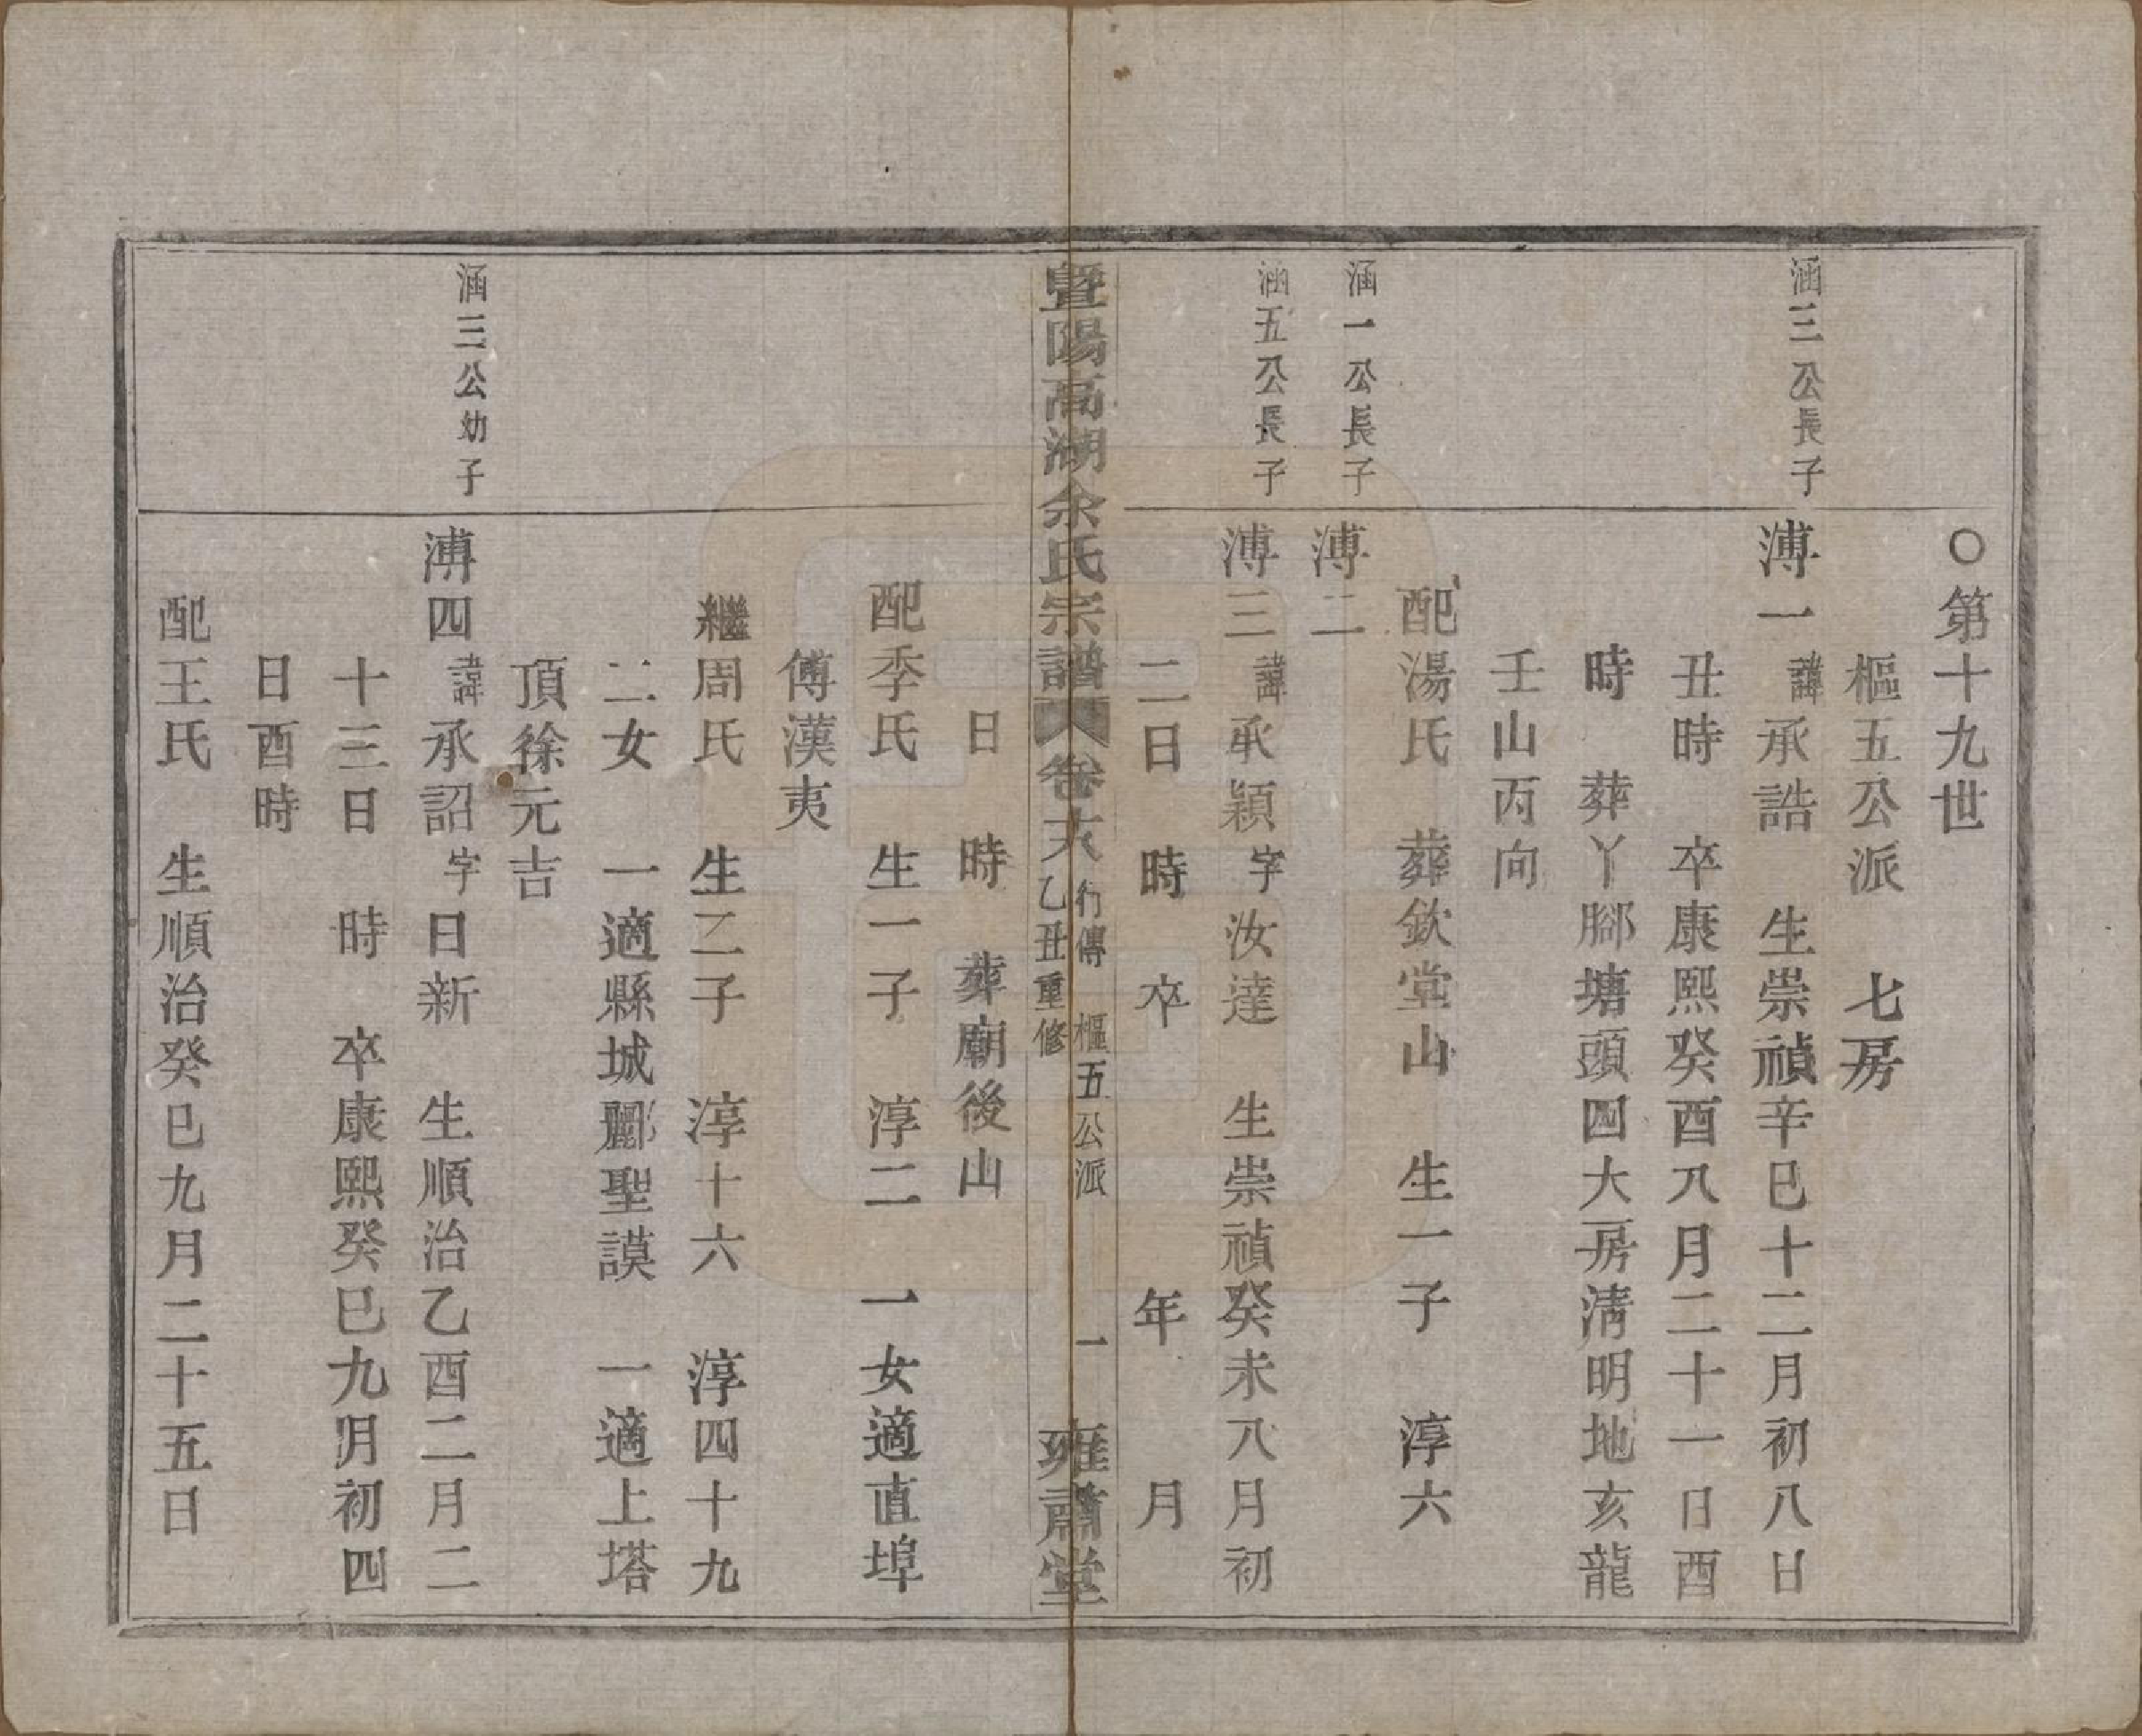 〇第十九世
樞五公派　七房
涵三公長子
溥一諱承誥　生崇禎辛巳十二月初八日
丑時　卒康熙癸酉八月二十一日酉
時　葬丫腳塘頭四大房淸明地亥龍
壬山丙向
配湯氏　葬欽堂山　生一子　淳六
涵一公長子
溥二
涵五公長子
溥三諱承穎字汝達　生崇禎癸未八月初
二日　時　卒　年　月
暨陽高湖余氏宗譜　卷十六　行傳　樞五公派　乙丑重修　一　雍肅堂
日　時　葬廟後山
配季氏　生一子　淳二　一女適直埠
傅漢夷
繼周氏　生二子　淳十六　淳四十九
二女　一適縣城酈聖謨　一適上塔
頂徐元吉
涵三公幼子
溥四諱承詔字日新　生順治乙酉二月二
十三日　時　卒康熙癸巳九月初四
日酉時
配王氏　生順治癸巳九月二十五日